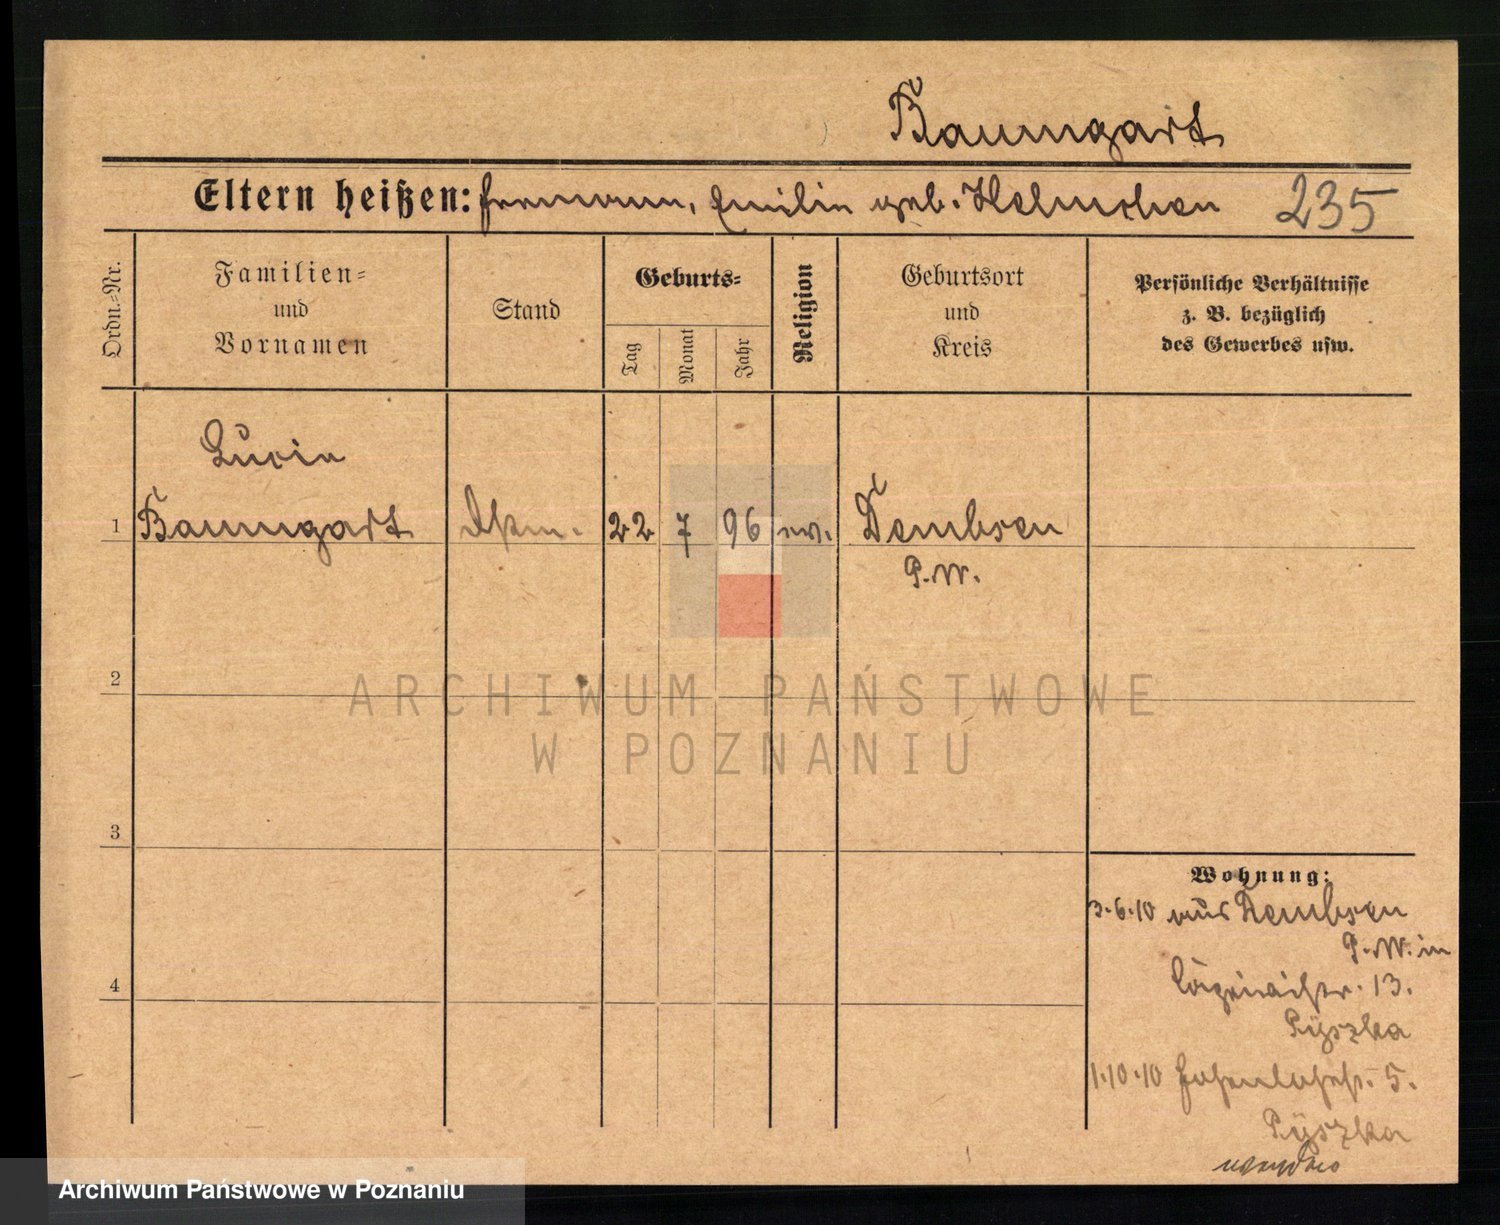 Baumgart
Eltern heißen: Hermann, Emilie geb. Helmchen 235
Ordn.-Nr.
Familien-
und
Vornamen
Stand
Geburts-
Tag
Monat
Jahr
Religion
Geburtsort
und
Kreis
Persönliche Verhältnisse
z. B. bezüglich
des Gewerbes usw.
Lucie
1 Baumgart 22 7 96 ev. Dembsen
P. W.
2
ARCHIWUM PAŃSTWOWE
W POZNANIU
3
Wohnung:
3.6.10 aus Dembsen
P. W. in
13.
Pyszka
4
1.10.10 Hohenlohestr. 5.
Pyszka
Archiwum Państwowe w Poznaniu